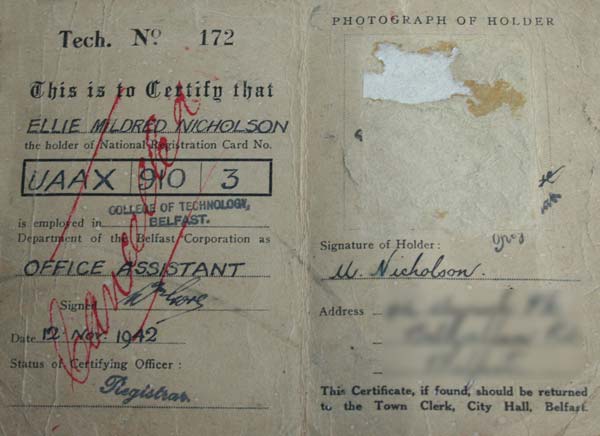 Tech. No 172
This is to Certify that
ELLIE MILDRED NICHOLSON
the holder of National Registration Card No.
UAAX 90 3
COLLEGE OF TECHNOLOGY,
is employed in BELFAST.
Department of the Belfast Corporation as
OFFICE ASSISTANT
Signed
Date 12 Nov. 1942
Status of Certifying Officer :
Registrar.
Cancelled
PHOTOGRAPH OF HOLDER
Signature of Holder :
M. Nicholson.
Address
This Certificate, if found, should be returned
to the Town Clerk, City Hall, Belfast.